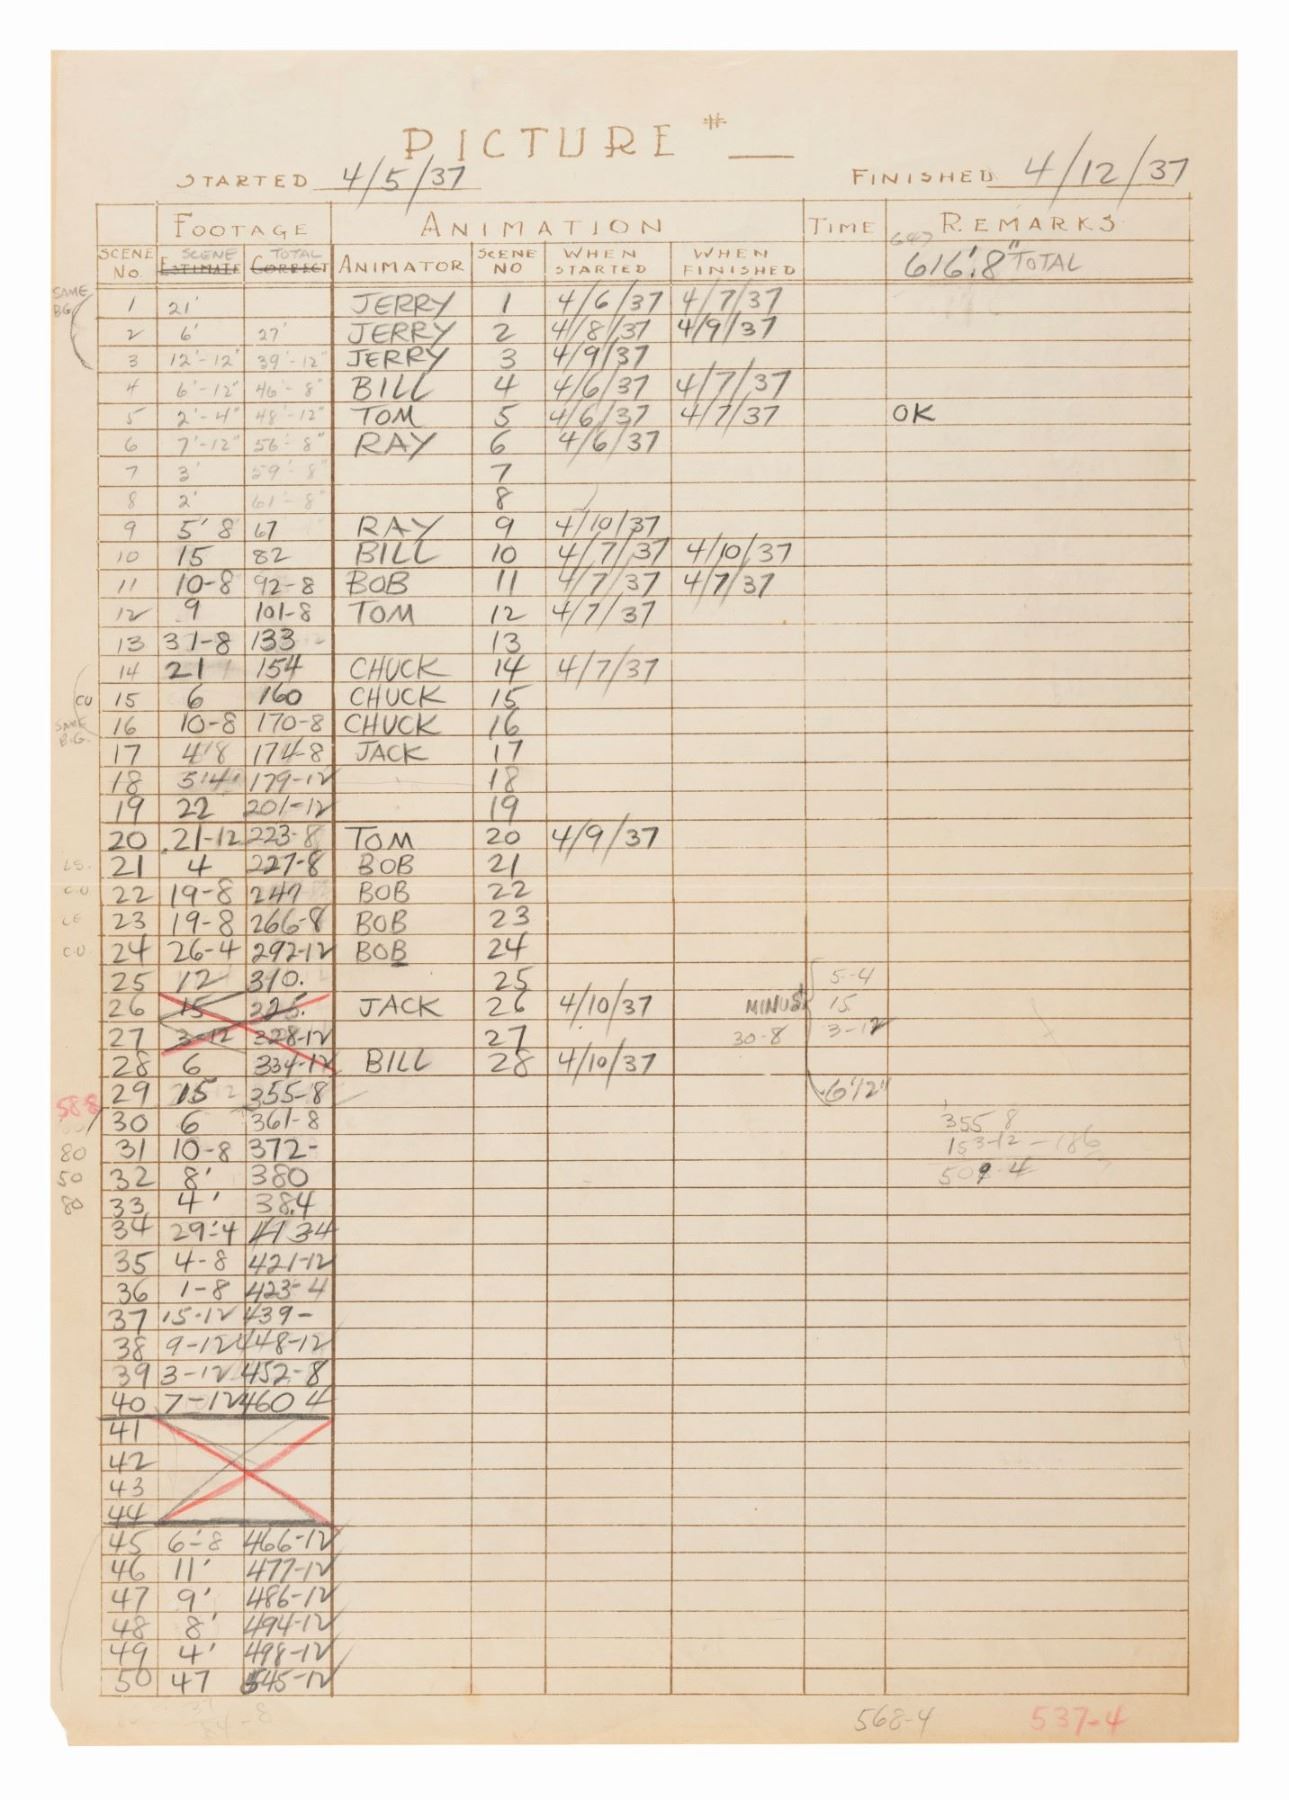 PICTURE # __
STARTED 4/5/37 FINISHED 4/12/37
FOOTAGE ANIMATION TIME REMARKS
SCENE No. SCENE ESTIMATE TOTAL CORRECT ANIMATOR SCENE NO WHEN STARTED WHEN FINISHED 616'.8" TOTAL
SAME BG
1 21' JERRY 1 4/6/37 4/7/37
2 6' 27' JERRY 2 4/8/37 4/9/37
3 12'-12" 39'-12" JERRY 3 4/9/37
4 6'-12" 46'-8" BILL 4 4/6/37 4/7/37
5 2'-4" 48'-12" TOM 5 4/6/37 4/7/37 OK
6 7'-12" 56'-8" RAY 6 4/6/37
7 3' 59'-8" 7
8 2' 61'-8" 8
9 5'8 67 RAY 9 4/10/37
10 15 82 BILL 10 4/7/37 4/10/37
11 10-8 92-8 BOB 11 4/7/37 4/7/37
12 9 101-8 TOM 12 4/7/37
13 31-8 133 13
14 21 154 CHUCK 14 4/7/37
CU 15 6 160 CHUCK 15
SAME B.G. 16 10-8 170-8 CHUCK 16
17 4'8 174-8 JACK 17
18 5'4" 179-12 18
19 22 201-12 19
20 21-12 223-8 TOM 20 4/9/37
LS. 21 4 227-8 BOB 21
C.U 22 19-8 247 BOB 22
23 19-8 266-8 BOB 23
C.U. 24 26-4 292-12 BOB 24
25 12 310. 25 5-4
26 15 325. JACK 26 4/10/37 MINUS 15
27 3-12 328-12 27 30-8 3-12
28 6 334-12 BILL 28 4/10/37
29 15 355-8 6'12"
588
30 6 361-8 355 8
80 31 10-8 372- 153-12 - 186
50 32 8' 380 509-4
80 33 4' 384
34 29'.4 4134
35 4-8 421-12
36 1-8 423-4
37 15-12 439-
38 9-12 448-12
39 3-12 452-8
40 7-12 460 4
41
42
43
44
45 6'-8 466-12
46 11' 477-12
47 9' 486-12
48 8' 494-12
49 4' 498-12
50 47 545-12
568-4 537-4